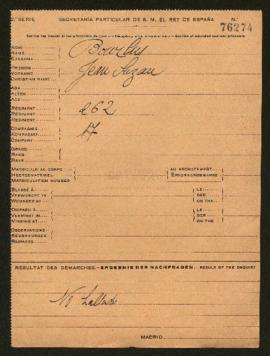 2.ª SERIE SECRETARÍA PARTICULAR DE S. M. EL REY DE ESPAÑA N.º
76274
NOM
NAME
SURNAME
PRÉNOM
VORNAME
CHRISTIAN NAME
Jean
AGE
ALTER
AGE
RÉGIMENT
REGIMENT
REGIMENT
262
COMPAGNIE
KOMPAGNIE
COMPANY
17
GRADE
RANG
RANK
MATRICULE AU CORPS
HEERESMATRIKEL
MATRICULATION NUMBER
AU RECRUTEMENT
BLESSÉ À
VERWUNDET IN
WOUNDED AT
LE
DER
ON THE
DISPARU À
VERMISST IN
MISSING AT
LE
DER
ON THE
OBSERVATIONS
BEMERKUNGEN
REMARKS
RESULTAT DES DÉMARCHES.—ERGEBNIS DER NACHFRAGEN.—RESULT OF THE ENQUIRY
MADRID